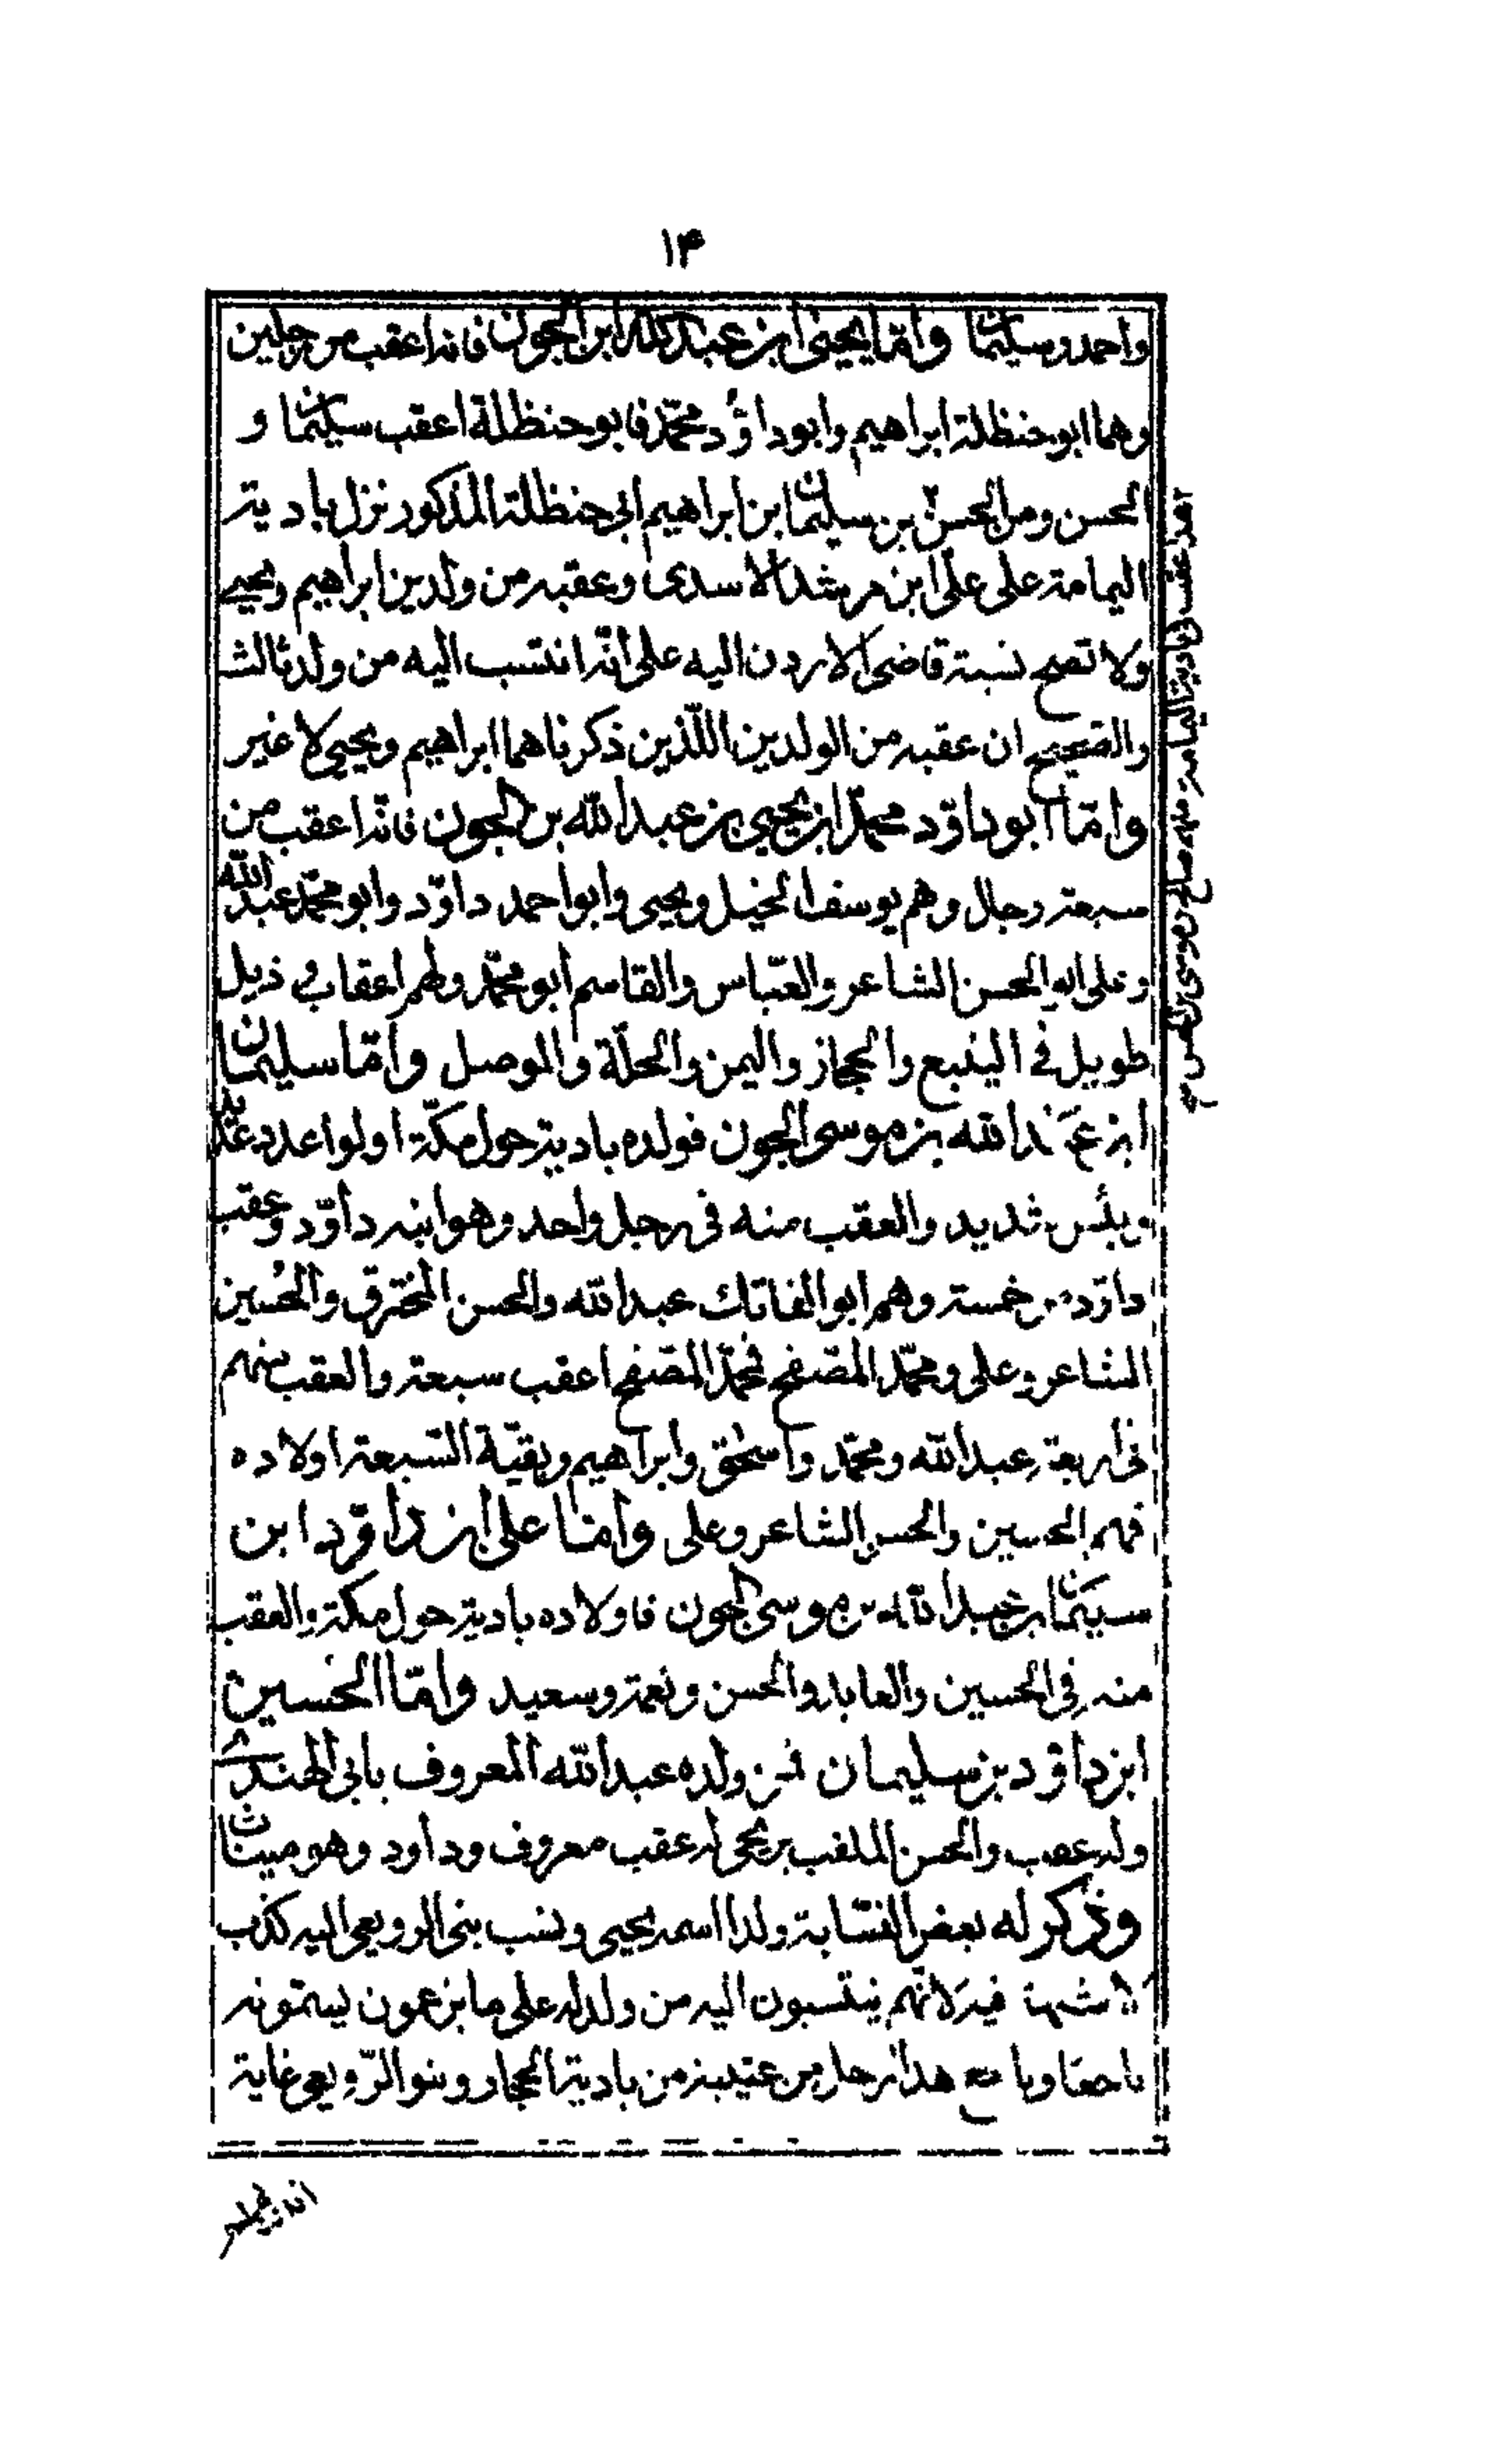 ١٣
واحمد وسليمان واما يحيى ابن عبد الله ابن الجون فانه اعقب من رجلين
وهما ابو حنظلة ابراهيم وابو داؤد محمّد فابو حنظلة اعقب سليمان و
الحسن ومن الحسن بن سليمان ابن ابراهيم ابى حنظلة المذكور نزل بادية
اليمامة على على ابن مرشد الاسدى وعقبه من ولدين ابراهيم ويحيى
ولا تصح نسبة قاضى الاردن اليه على انّه انتسب اليه من ولد ثالث
والصّحيح ان عقبه من الولدين اللّذين ذكرناهما ابراهيم ويحيى لا غير
وامّا ابو داوّد محمّد ابن يحيى بن عبد اللّه بن الجون فانّه اعقب من
سبعة رجال وهم يوسف الخيل ويحيى وابو احمد داوّد وابو محمّد عبد اللّه
وعلى الحسن الشاعر والعبّاس والقاسم ابو محمّد ولهم اعقاب فى ذيل
طويل فى الينبع والحجاز واليمن والحلّة والموصل وامّا سليمان
ابن عبد اللّه بن موسى الجون فولده بادية حول مكّة اولوا عدد
وبئس شديد والعقب منه فى رجل واحد وهو ابنه داوّد وعقب
داوّد من خمسة وهم ابو الفاتك عبد اللّه والحسن المخترق والحسين
الشاعر وعلى ومحمّد المصفح فمحمّد المصفح اعقب سبعة والعقب منهم
فى اربعة عبد اللّه ومحمّد واسحٰق وابراهيم وبقيّة السّبعة اولاده
فهم الحسين والحسن الشاعر وعلى وامّا على ابن داوّد ابن
سليمان بن عبد اللّه بن موسى الجون فاولاده بادية حول مكة والعقب
منه فى الحسين والعابد والحسن ونعمة وسعيد وامّا الحسين
ابن داوّد بن سليمان فمن ولده عبد اللّه المعروف بابى الهندى
وله عقب والحسن الملقب له عقب معروف وداود وهو ميناث
وذكر له بعض النسّابة ولدا اسمه يحيى ونسب بنى الرويعى اليه كذب
لا شبهة فيه لانّهم ينتسبون اليه من ولد له على ما يزعمون يسمّونه
هذا رجل من عتيبة من بادية الحجاز وبنو الرّويعى غاية